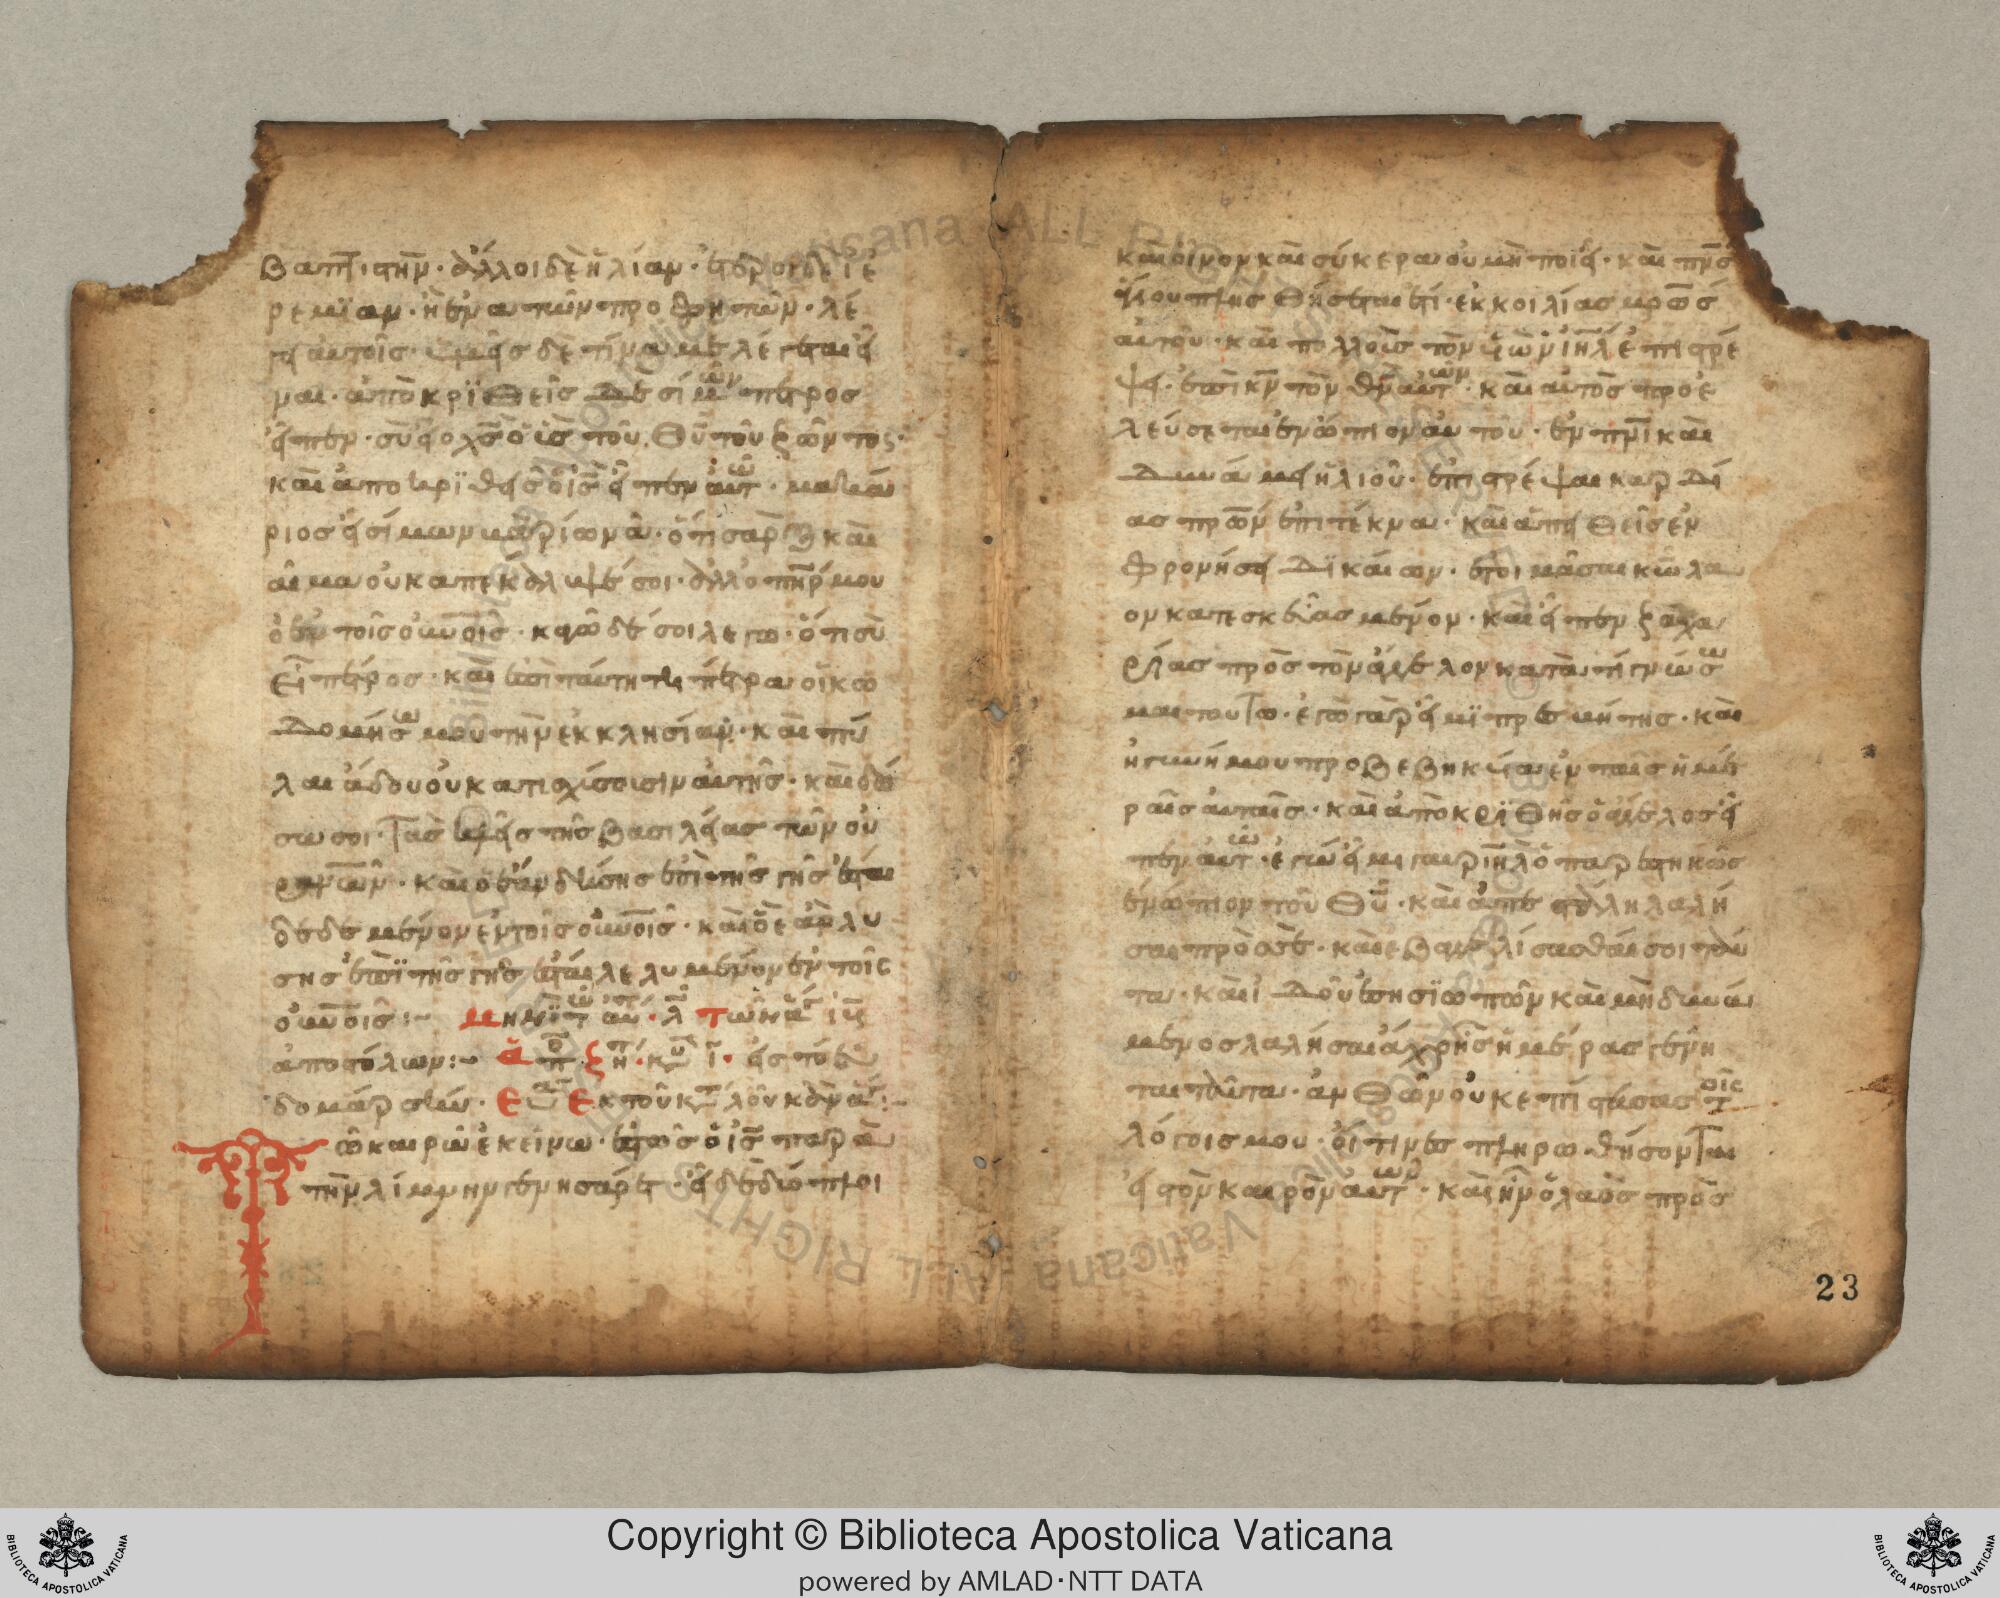 βαπτιστήν· ἄλλοι δὲ ἠλίαν· ἕτεροι δὲ ϊἑ
ρεμΐαν· ἢ ἕνα τῶν προφητῶν· λέ
γει αὐτοῖς· ὑμεῖς δὲ τίνα με λέγεται εἶ
ναι· ἀποκρϊθεὶς δὲ σίμων πέτρος
εἶπεν· σὺ εἶ ὁ χς ὁ υἱς τοῦ θυ τοῦ ζῶντος·
καὶ ἀποκρϊθεὶς ὁ ις εἶπεν αὐτῶ· μακά
ριος εἶ σίμων βαριωνᾶ· ὅτι σὰρξ καὶ
αἷμα οὐκ ἀπεκάλυψέ σοι· ἀλλ᾽ ὁ πηρ μου
ὁ ἐν τοῖς οὐνοις· κἀγὼ δέ σοι λέγω· ὅτι σὺ
εἶ πέτρος· καὶ ἐπὶ ταύτη τῆ πέτρα οἰκω
δομήσω μου τὴν ἐκκλησίαν· καὶ πύ
λαι ἅδου οὐ κατισχύσοισιν αὐτῆς· καὶ δώ
σω σοι τὰς κλεῖς τῆς βασιλείας τῶν οὐ
ρανῶν· καὶ ὃ ἐὰν δίσης ἐπὶ τῆς γῆς ἔσται
δεδεμένον ἐν τοῖς οὐνοις· καὶ ὃ ἐὰν λύ
σης ἐπῒ τῆς γῆς ἔσται λελυμένον ἐν τοῖς
οὐνοις:~ μηνὶ τῶ αὐ· λ τῶν ἁγ ιβ
ἀποστόλων:~ κυ ι· εἰς τὸ
ἐκ τοῦ κτ λουκᾶν
Τῶ καιρῶ ἐκείνω· ἑστὼς ὁ ις παρὰ
τὴν λίμνην γενησαρέτ· εἶδε δύο πλοι
καὶ οἶνον καὶ σύκερα οὐ μὴ ποιεῖ· καὶ πνς
ἁγίου πλησθήσεται ἔτι· ἐκ κοιλίας μρος
αὐτοῦ· καὶ πολλοῖς τὸν υἱῶν ιηλ ἐπιστρέ
ψει· ἐπὶ κν τὸν θν αὐτῶν· καὶ αὐτὸς προε
λεύσεται ἐνώπιον αὐτοῦ· ἐν πνι καὶ
δυνάμει ἠλιοῦ· ἐπιστρέψαι καρδί
ας προν ἐπὶ τέκνα· καὶ ἀπειθεῖς ἐν
φρονήσει δϊκαίων· ἑτοιμᾶσαι κῶ λα
ὸν κατεσκευασμένον· καὶ εἶπεν ζαχα
ρίας πρὸς τὸν ἄγγελον κατὰ τί γνώσω
μαι τοῦτο· ἐγὼ γὰρ εἰμϊ πρεσβύτης· καὶ
ἡ γυνή μου προβεβηκυῖα ἐν ταῖς ἡμέ
ραις αὐταῖς· καὶ ἀποκρϊθῆς ὁ ἄγγελος εἶ
πεν αὐτῶ· ἐγώ εἰμι γαριηλ ὁ παρεστηκὼς
ἐνώπιον τοῦ θυ· καὶ ἀπεστάλην λαλή
σαι πρὸς σε· καὶ εὐαγγελίσασθαί σοι ταῦ
τα· καὶ ἰδοῦ ἔση σϊωπῶν καὶ μὴ δυνά
μενος λαλῆσαι ἄχρι ἧς ἡμέρας γένη
ται ταῦτα· ἀνθῶν οὐκ ἐπίστασας τοῖς
λόγοις μου· οἵτινες πληρωθήσονται
εἰς τὸν καιρὸν αὐτῶν· καὶ ἦν ὁ λαὸς πρὸς
23
Copyright © Biblioteca Apostolica Vaticana
powered by AMLAD·NTT DATA